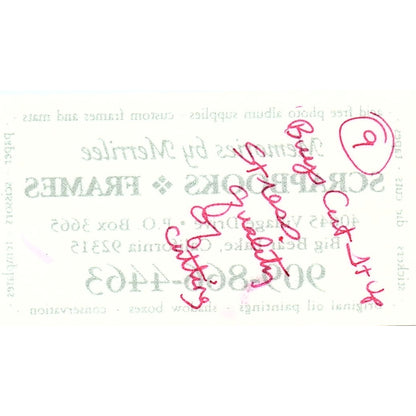 9
Buys Cut-It-Up
Stress
Quality
of
cutting
free photo album supplies - custom frames and mats
Memories by Merrilee
SCRAPBOOKS ❖ FRAMES
Village Drive • P.O. Box 3665
Big Bear Lake, California 92315
909-866-4463
original oil paintings - shadow boxes - conservation
paper · scissors · templates
stickers · die cuts · tapes